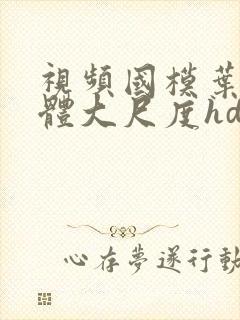 視頻國模葉
體大尺度hd
心存夢遂行動